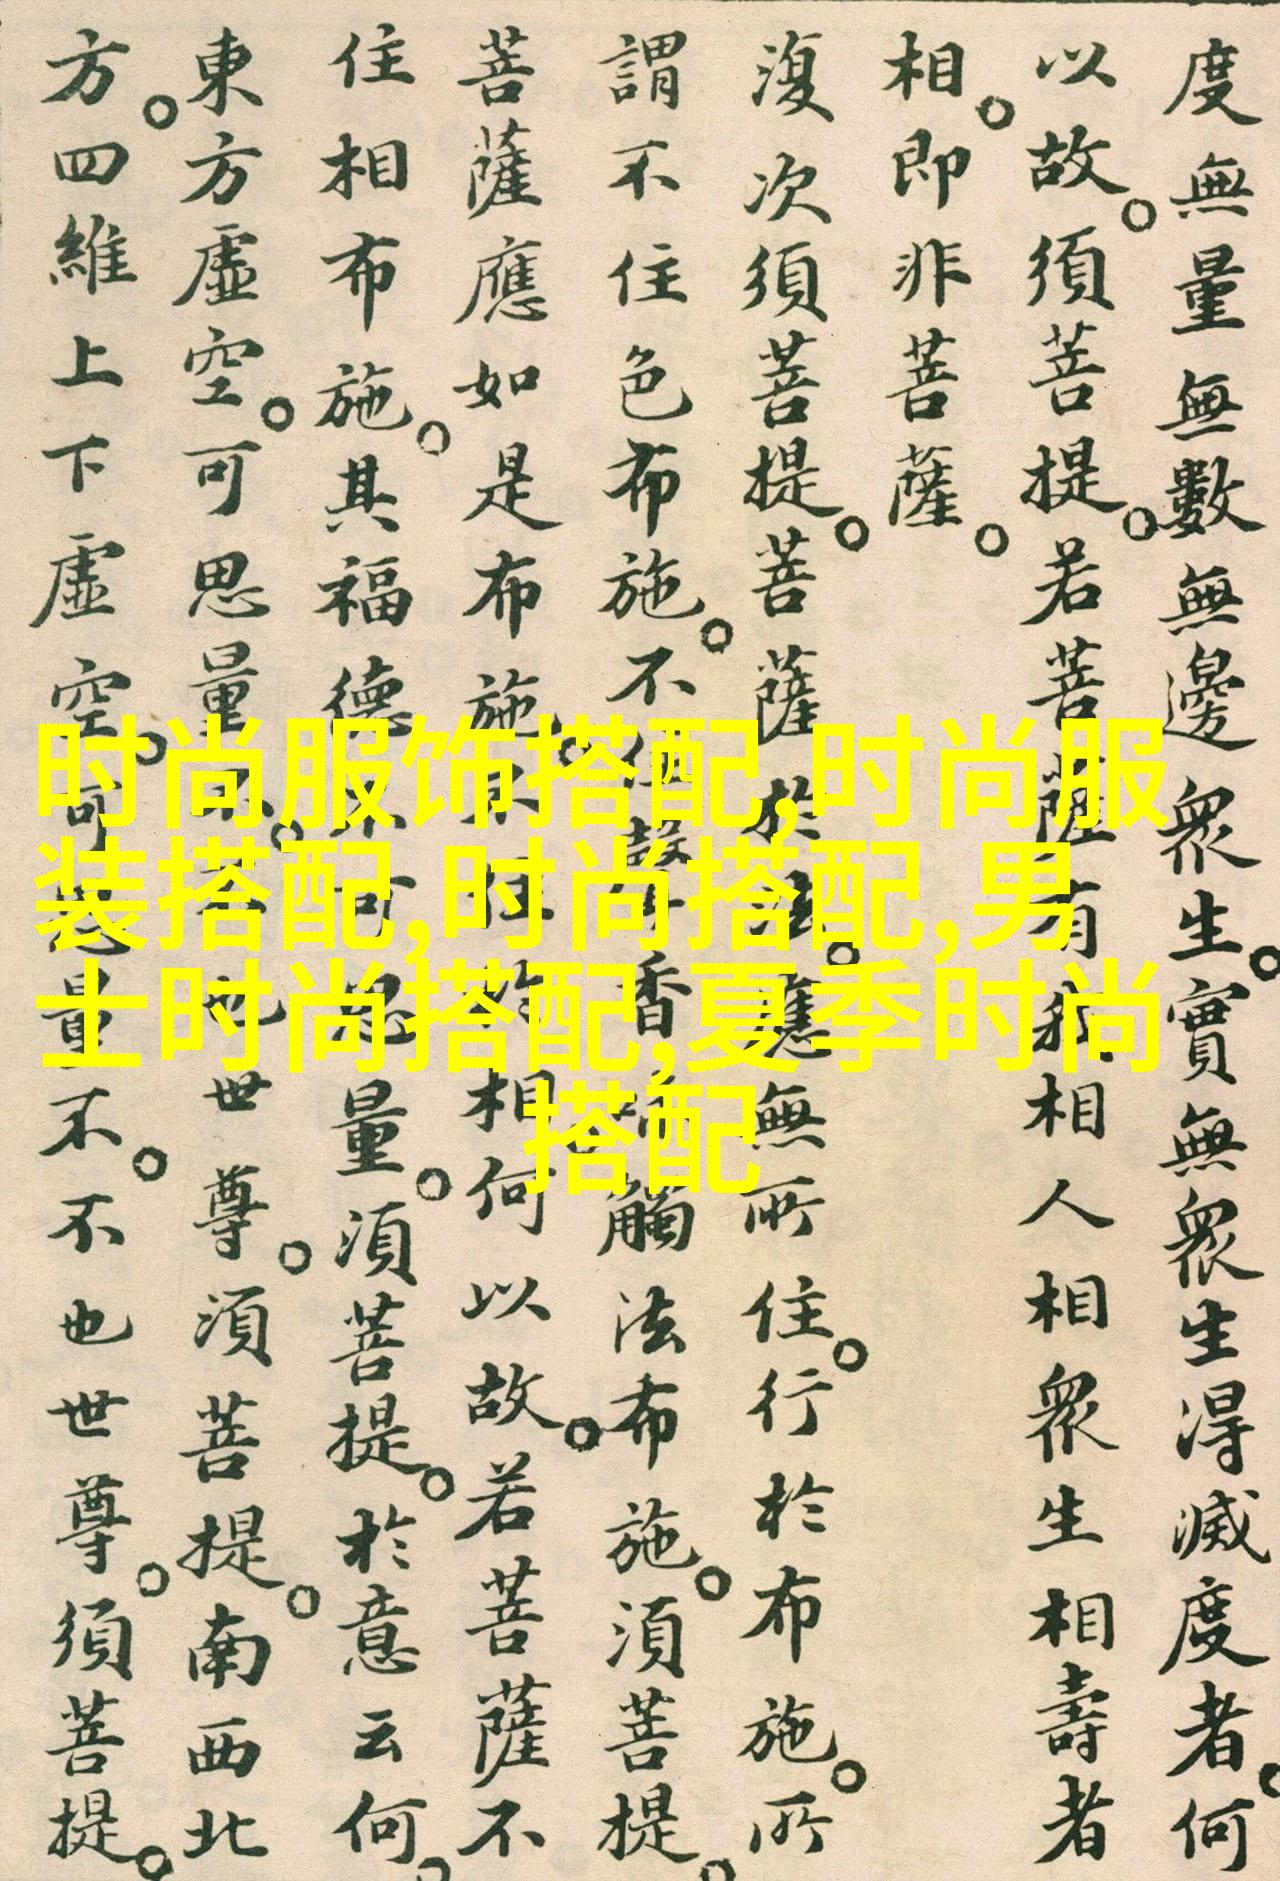 度無量無數無邊衆生。實無衆生得滅度者。何
以故。須菩提。若菩薩有我相人相衆生相壽者
相。即非菩薩。
復次須菩提。菩薩於法。應無所住。行於布施。所
謂不住色布施。不住聲香味觸法布施。須菩提。
菩薩應如是布施。不住於相何以故。若菩薩不
住相布施。其福德不可思量。須菩提。於意云何。
東方虛空。可思量不。不也世尊。須菩提。南西北
方。四維上下虛空。可思量不。不也世尊。須菩提。
时尚服饰搭配,时尚服
装搭配,时尚搭配,男
士时尚搭配,夏季时尚
搭配